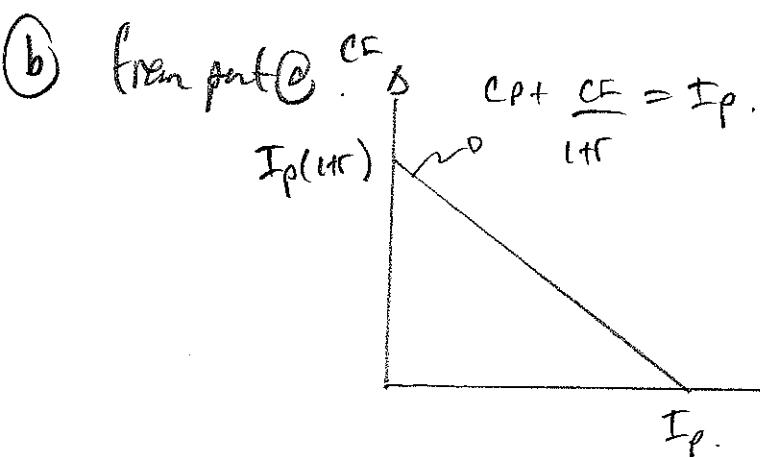 (b) from part (a). CF
CP + CF/(1+r) = Ip.
Ip(1+r)
Ip.